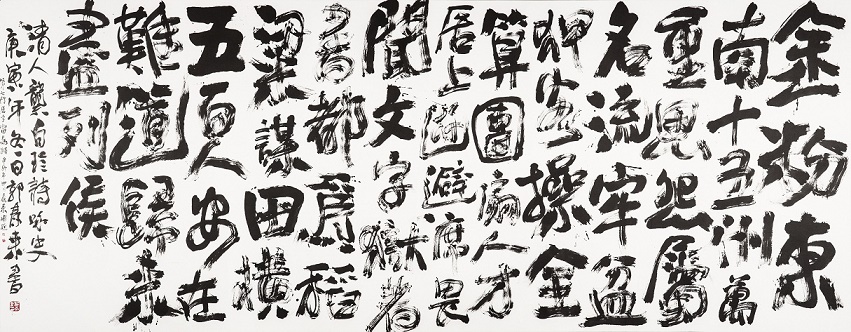 金粉東
南十五州萬
重恩怨屬
名流牢盆
狎客操全
算團扇人才
居上游避席畏
聞文字獄著
書都為稻
粱謀田橫
五百人安在
難道歸來
盡列侯
清人龔自珍詩咏史
庚寅年冬日書